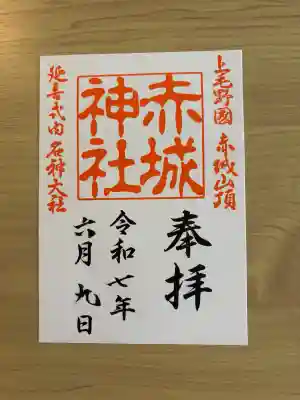 上毛野國 赤城山頂
奉拝
赤城
神社
令和七年
六月九日
延喜式内 名神大社